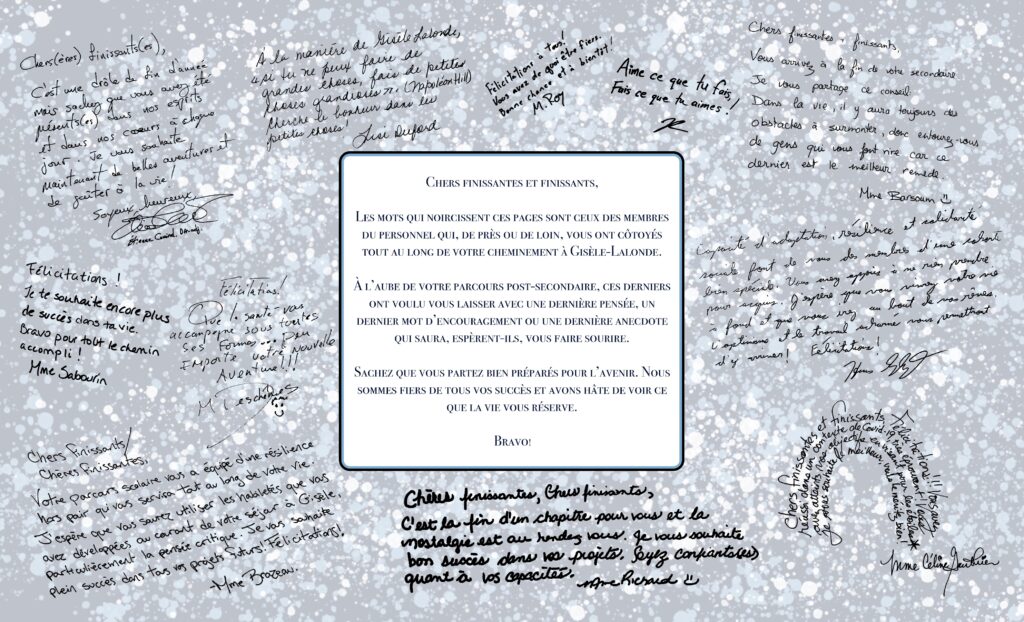 Chers(ères) finissants(es),
C'est une drôle de fin d'année
mais sachez que vous avez été
présents(es) dans nos esprits
et dans nos cœurs à chaque
jour. Je vous souhaite
maintenant de belles aventures et
de goûter à la vie!
Soyez heureux
À la manière de Gisèle Lalonde,
« si tu ne peux faire de
grandes choses, fais de petites
choses grandioses ». (Napoléon Hill)
Cherche le bonheur dans les
petites choses!
Lise Duford
Félicitations à tous!
Vous avez de quoi être fiers.
Bonne chance et à bientôt!
M. Roy
Aime ce que tu fais,
Fais ce que tu aimes!
Chers finissantes, finissants,
Vous arrivez à la fin de votre secondaire
Je vous partage ce conseil:
Dans la vie, il y aura toujours des
obstacles à surmonter, donc entourez-vous
de gens qui vous font rire car ce
dernier est le meilleur remède.
Mme Barsoum
Chers finissantes et finissants,
Les mots qui noircissent ces pages sont ceux des membres
du personnel qui, de près ou de loin, vous ont côtoyés
tout au long de votre cheminement à Gisèle-Lalonde.
À l'aube de votre parcours post-secondaire, ces derniers
ont voulu vous laisser avec une dernière pensée, un
dernier mot d'encouragement ou une dernière anecdote
qui saura, espèrent-ils, vous faire sourire.
Sachez que vous partez bien préparés pour l'avenir. Nous
sommes fiers de tous vos succès et avons hâte de voir ce
que la vie vous réserve.
Bravo!
Félicitations !
Je te souhaite encore plus
de succès dans ta vie.
Bravo pour tout le chemin
accompli !
Mme Sabourin
Félicitations!
Que la santé vous
accompagne sous toutes
ses formes... Peu
importe votre nouvelle
Aventure!!!
M Deschênes
Capacité d'adaptation, résilience et solidarité
sociale font de vous des membres d'une cohort
bien spéciale. Vous avez appris à ne rien prendre
pour acquis. J'espère que vous vivrez votre vie
à fond et que vous irez au bout de vos rêves.
L'optimisme et le travail acharné vous permettront
d'y arriver! Félicitations!
Chers finissants/
Chères finissantes,
Votre parcours scolaire vous a équipé d'une résilience
hors pair qui vous servira tout au long de votre vie.
J'espère que vous saurez utiliser les habiletés que vous
avez développées au courant de votre séjour à Gisèle,
particulièrement la pensée critique. Je vous souhaite
plein succès dans tous vos projets futurs! Félicitations!
-Mme Brazeau
Chères finissantes, Chers finissants,
C'est la fin d'un chapitre pour vous et la
nostalgie est au rendez-vous. Je vous souhaite
bon succès dans vos projets. Soyez confiants(es)
quant à vos capacités.
Mme Richard
Chers finissantes et finissants,
Félicitations!!! Vous avez
réussi dans un contexte de Covid-19,
Mme Céline Gauthier